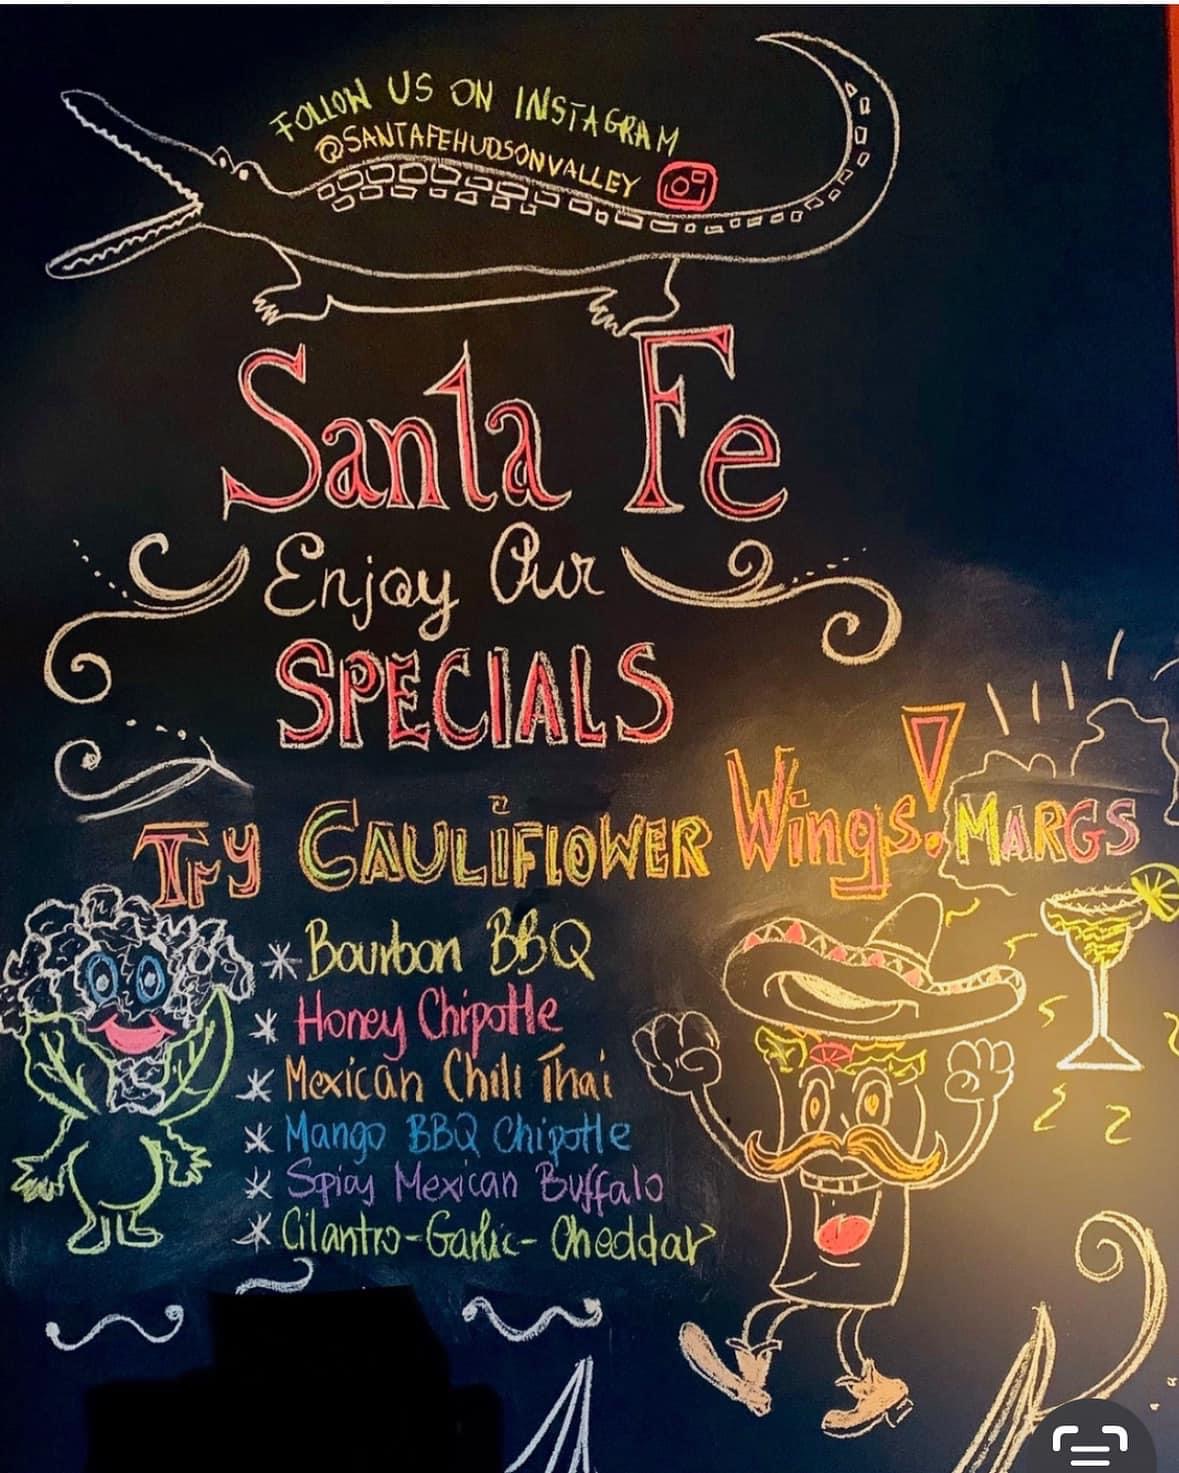 FOLLOW US ON INSTAGRAM
@SANTAFEHUDSONVALLEY
Santa Fe
Enjoy Our
SPECIALS
Try CAULIFLOWER Wings! MARGS
* Bourbon BBQ
* Honey Chipotle
* Mexican Chili Thai
* Mango BBQ Chipotle
* Spicy Mexican Buffalo
* Cilantro-Garlic-Cheddar